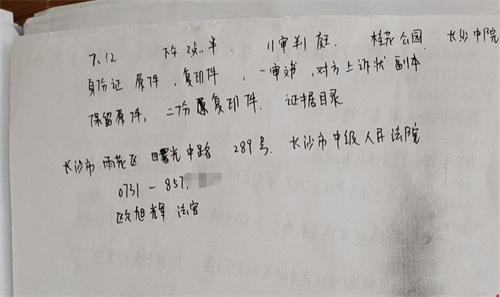 7.12 下午2点半 11审判庭. 桂花公园 长沙中院
身份证原件、复印件, 一审书, 对方上诉状副本
保留原件, 二份复印件. 证据目录
长沙市雨花区曙光中路289号. 长沙市中级人民法院
0731-857.
欧旭辉 法官